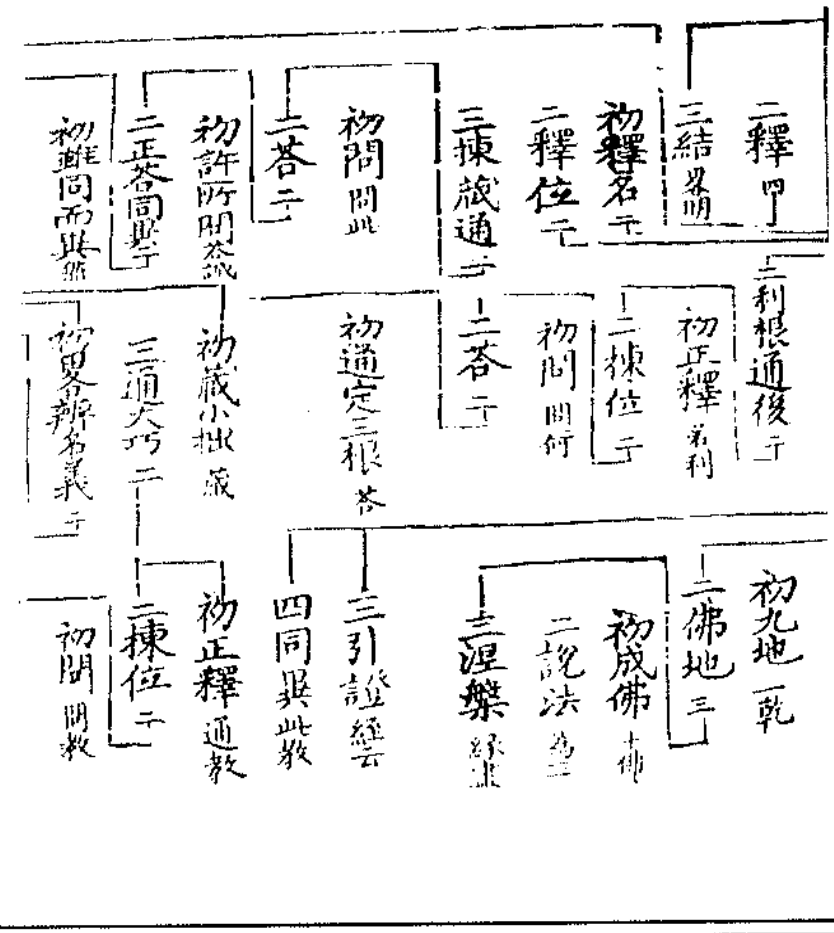 二釋 四
三結
初釋名 二
二釋位 二
三揀藏通 二
初問 問此
二荅 二
初許所問
二正荅同異 二
初雖同而異
二利根通後 二
初正釋 若利
二揀位 二
初問 問何
二荅 二
初通定三根 荅
初藏小拙 藏
二通大巧 二
初畧辨名義 二
初九地 一乾
二佛地 三
初成佛
二說法
三涅槃 緣
三引證 經云
四同異 此教
初正釋 通教
二揀位 二
初問 問教